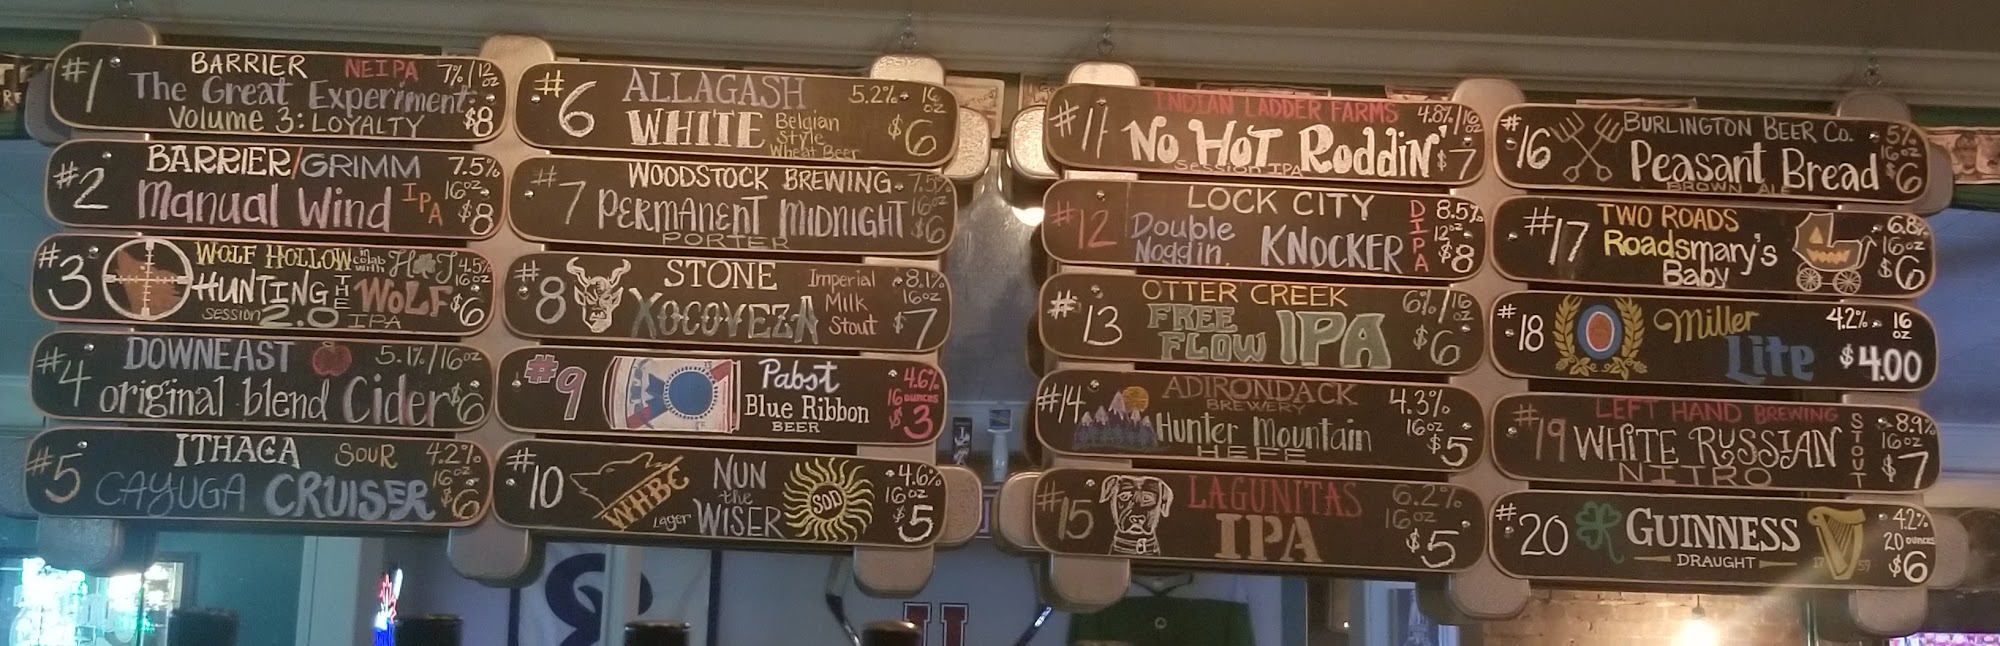 #1 BARRIER NEIPA 7%/12oz
The Great Experiment:
Volume 3: LOYALTY $8
#2 BARRIER/GRIMM 7.5%
Manual Wind IPA 16oz $8
#3 WOLF HOLLOW in colab with H&J 4.5%
HUNTING THE WOLF 16oz $6
Session 2.0 IPA
#4 DOWNEAST 5.1%/16oz
original blend Cider $6
#5 ITHACA SOUR 4.2%
CAYUGA CRUISER 16oz $6
#6 ALLAGASH 5.2% 16oz
WHITE Belgian Style Wheat Beer $6
#7 WOODSTOCK BREWING 7.5%
PERMANENT MIDNIGHT 16oz $6
PORTER
#8 STONE Imperial Milk Stout 8.1%
XOCOVEZA 16oz $7
#9 Pabst 4.6%
Blue Ribbon 16 OUNCES
BEER $3
#10 WHBC NUN the WISER SOD 4.6%
Lager 16oz $5
#11 INDIAN LADDER FARMS 4.8%/16oz
No HOT RoddiN' $7
SESSION IPA
#12 LOCK CITY DIPA 8.5%
Double Noggin KNOCKER 12oz $8
#13 OTTER CREEK 6%/16oz
FREE FLOW IPA $6
#14 ADIRONDACK 4.3%
BREWERY 16oz
Hunter Mountain $5
HEFE
#15 LAGUNITAS 6.2%
IPA 16oz $5
#16 BURLINGTON BEER Co. 5%
Peasant Bread 16oz $6
BROWN ALE
#17 TWO ROADS 6.8%
Roadsmary's 16oz
Baby $6
#18 Miller 4.2% 16oz
Lite $4.00
#19 LEFT HAND BREWING STOUT 8.9%
WHITE RUSSIAN 16oz
NITRO $7
#20 GUINNESS 4.2%
DRAUGHT 20 OUNCES
1759 $6